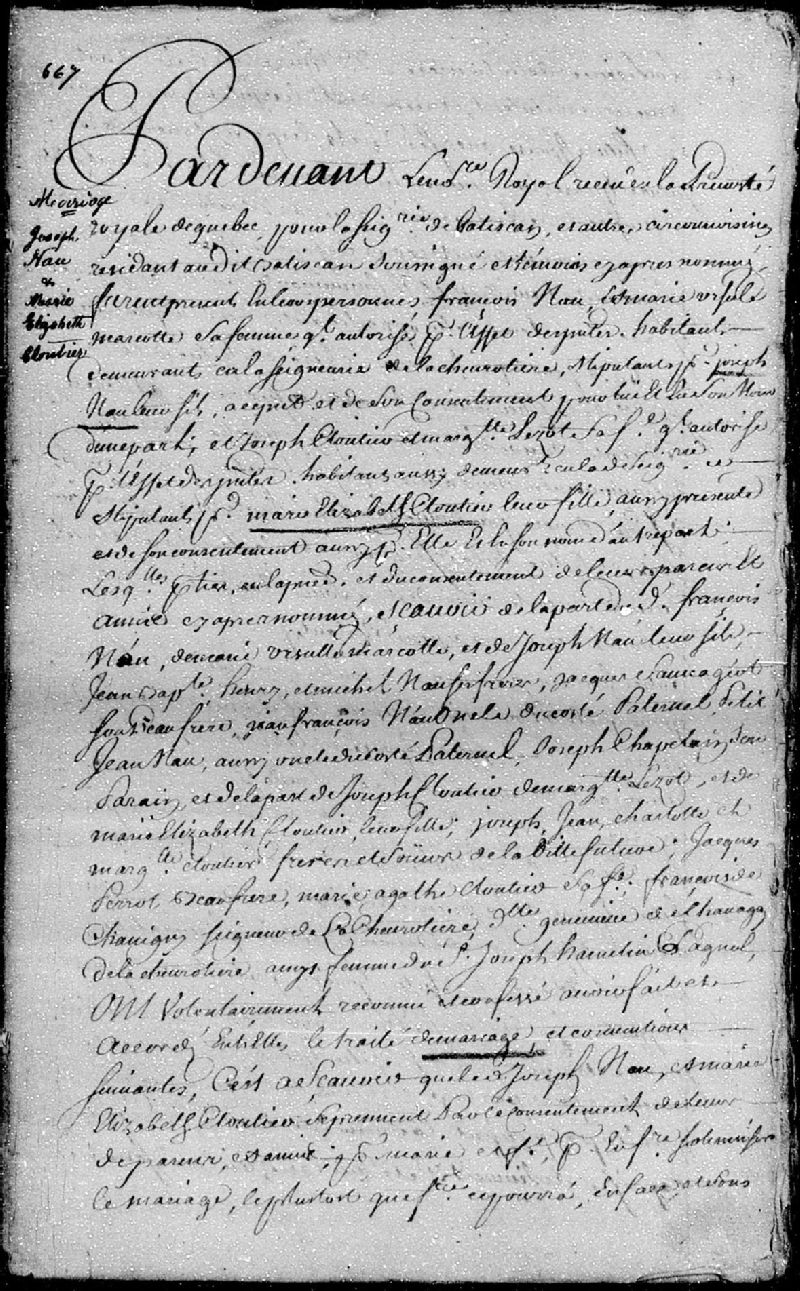 667
Mariage
Joseph
Nau
&
Marie
Elizabeth
Cloutier
Pardevant Le no.re Royal receu en la Prevosté
royale de quebec, pour la seig.rie de batiscan, et autres circonvoisines
residant audit batiscan soussigné et témoins cy apres nommé,
furent present en leurs personnes françois Nau, & marie ursule
marcotte sa femme q.l autorise p.r l'effet des p.ntes habitant
demeurant en la seigneurie de la chevrotiere, stipulants p.r joseph
Nau leur fils, a ce p.nt et de son consentement pour lui et en son nom
d'une part; et Joseph Cloutier et marg.tte Lezot sa f.e q.l autorise
p.r l'effet des p.ntes habitans aussy demeur.t en la de seig.rie
stipulants p.r marie Elizabeth Cloutier leur fille, aussy presente
et de son consentement aussy p.r Elle et en son nom d'autre part;
Lesq.lles parties, en la p.nce et du consentement de leurs parens et
amis cy apres nommé, scavoir de la part du d. françois
Nau, de marie ursulle marcotte, et de Joseph Nau leur fils,
Jean bap.te henry, et michel Nau ses freres, jacques sauvageot
son beau frere, jean françois Nau oncle du costé Paternel Petit
Jean Nau, aussy oncle du costé Paternel, Joseph Chapelain son
Parain, et de la part de Joseph Cloutier de marg.tte Lezot, et de
marie Elizabeth Cloutier, leur fille; joseph, Jean, charlotte et
marg.te cloutier freres et sœurs de la ditte future, Jacques
Perrot beau frere, marie agathe cloutier sa f.e, françois de
Chavigny seigneur de La Chevrotiere, d.lle genevieve de chavigny
de la chevrotiere femme du s.r Joseph hamelin
ONt volontairement reconnu et confessé avoir fait et
accordé Entr'Elles le traité de mariage, et conventions
suivantes, C'est a Scavoir que le d. Joseph Nau, & marie
Elizabeth Cloutier se prennent Par le consentement de leurs
de parens, et amis; p.r mary et f.e, p.r En f.re solemniser
le mariage, le plustost que f.re ce pourra, en face et sous